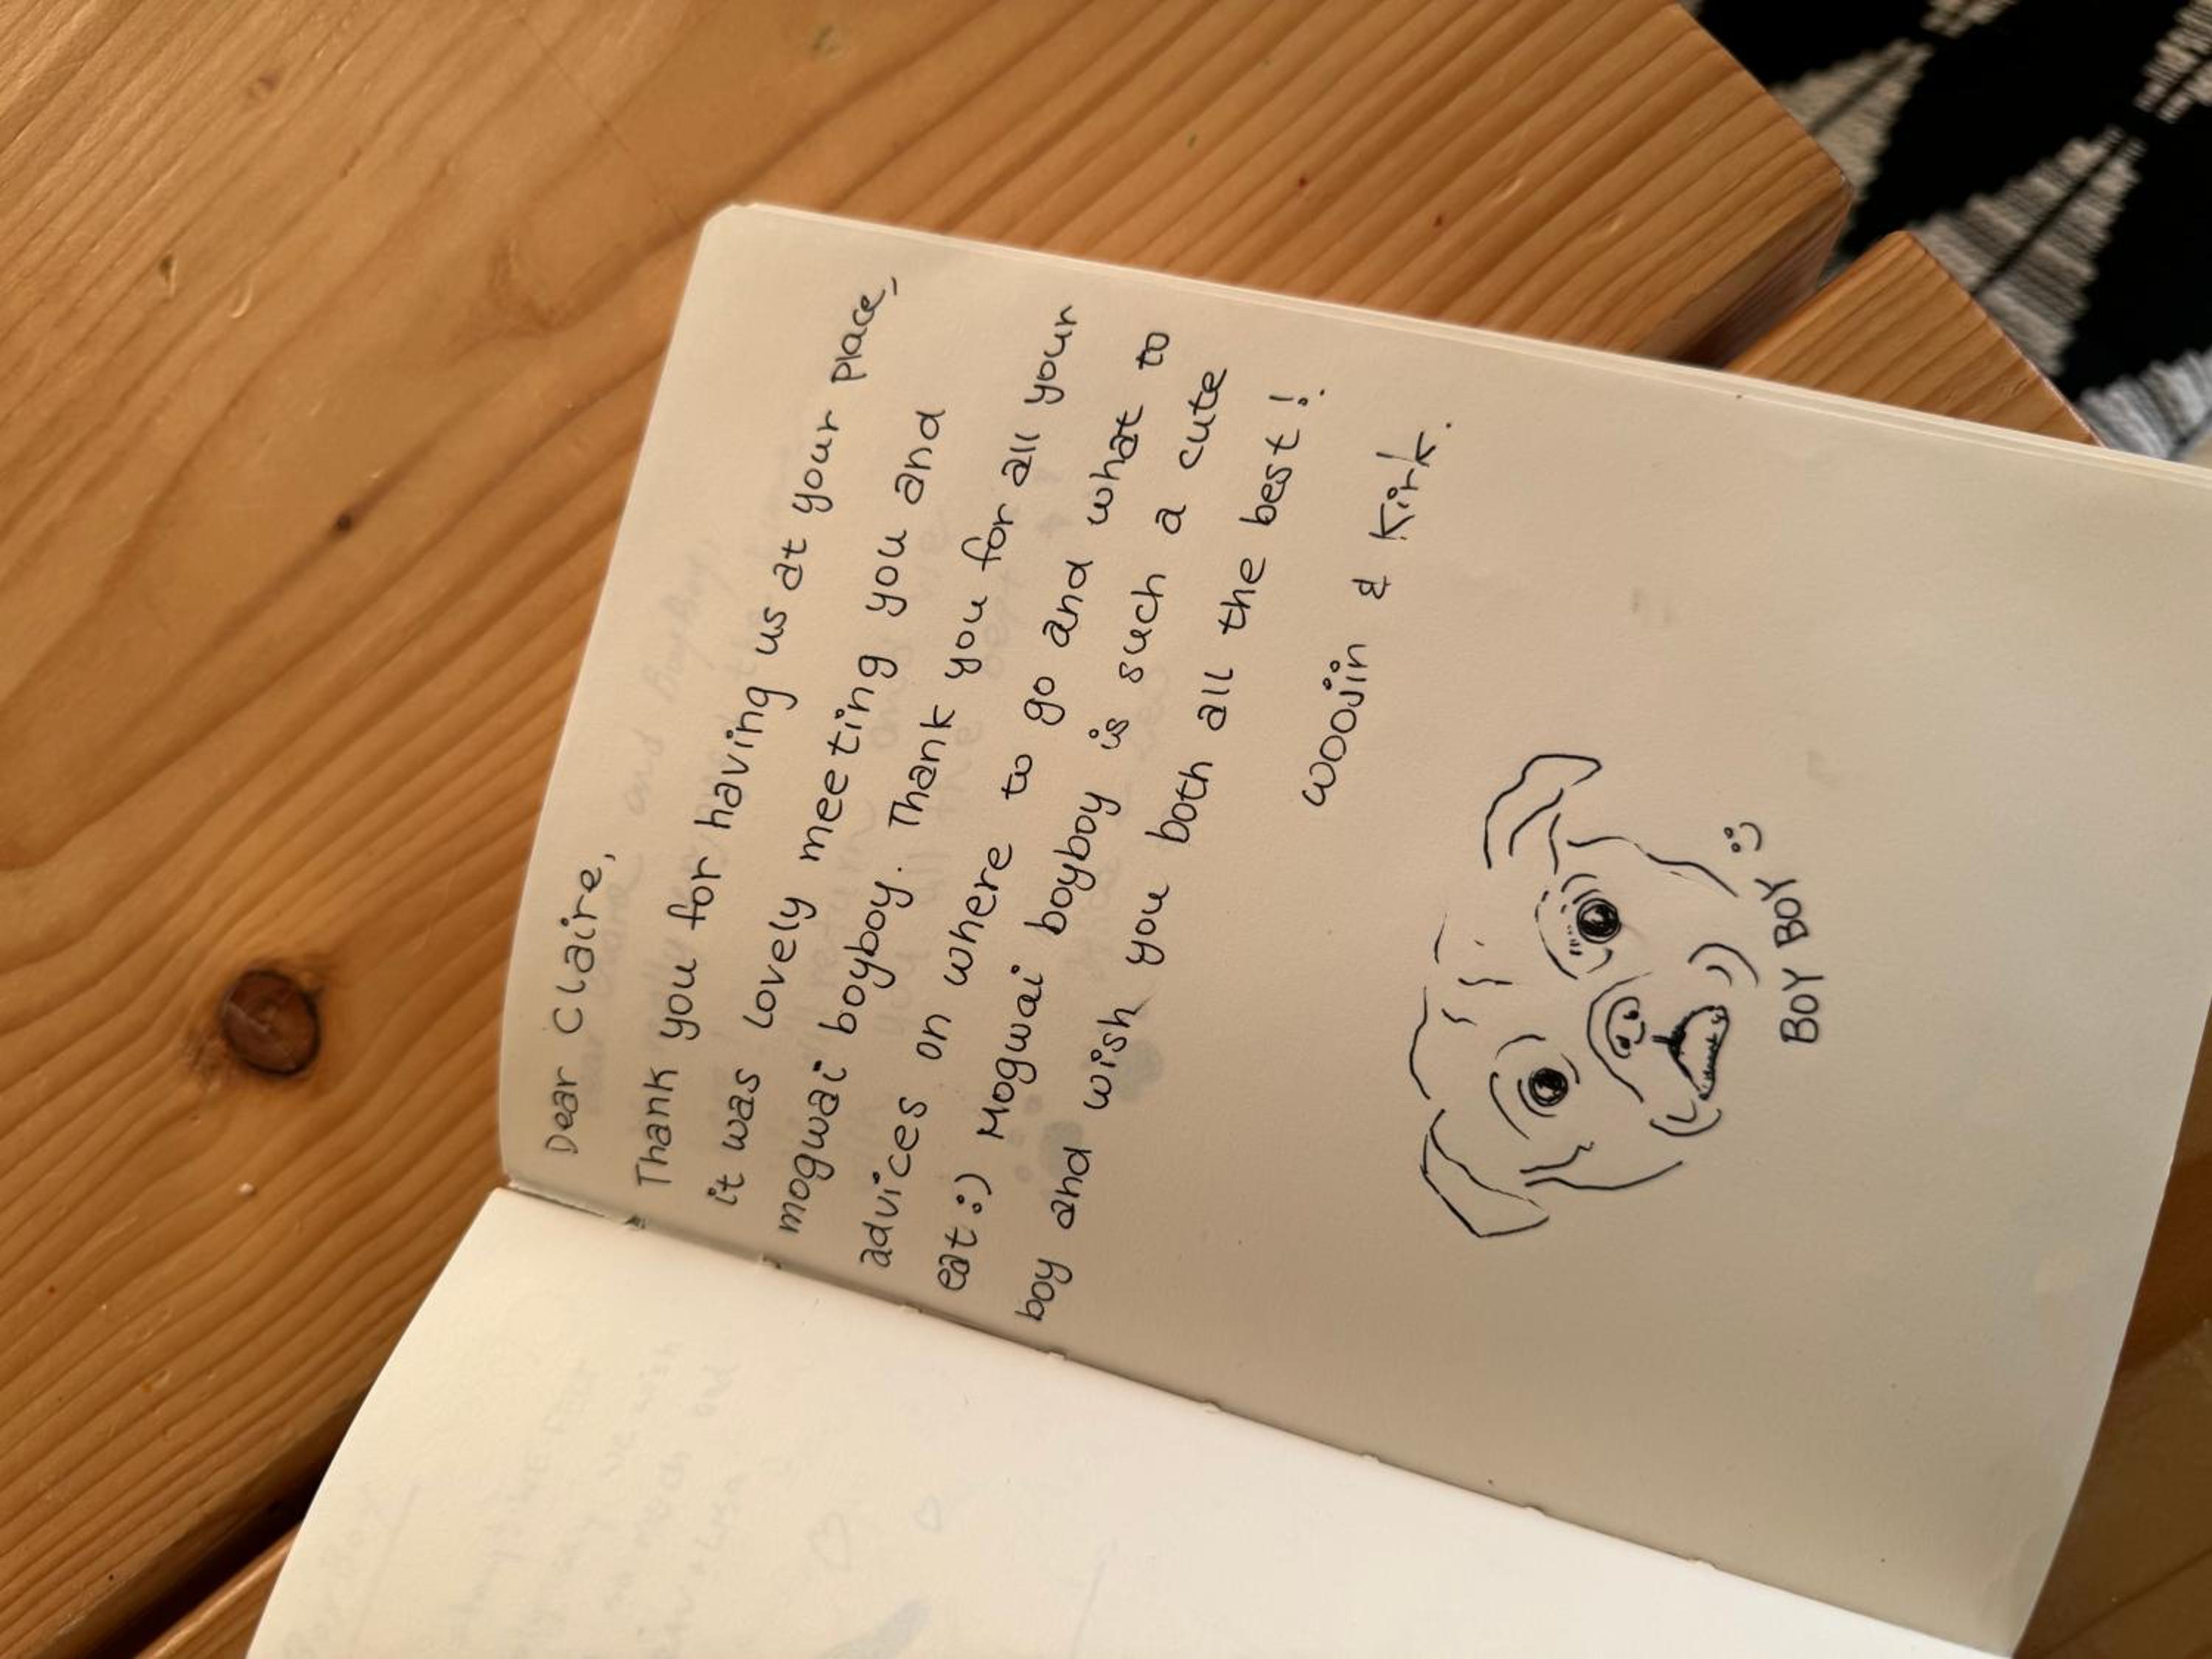 Dear Claire,
Thank you for having us at your place,
it was lovely meeting you and
mogwai boyboy. Thank you for all your
advices on where to go and what to
eat :) Mogwai boyboy is such a cute
boy and wish you both all the best!
woojin & Kirk.
BOY BOY :)